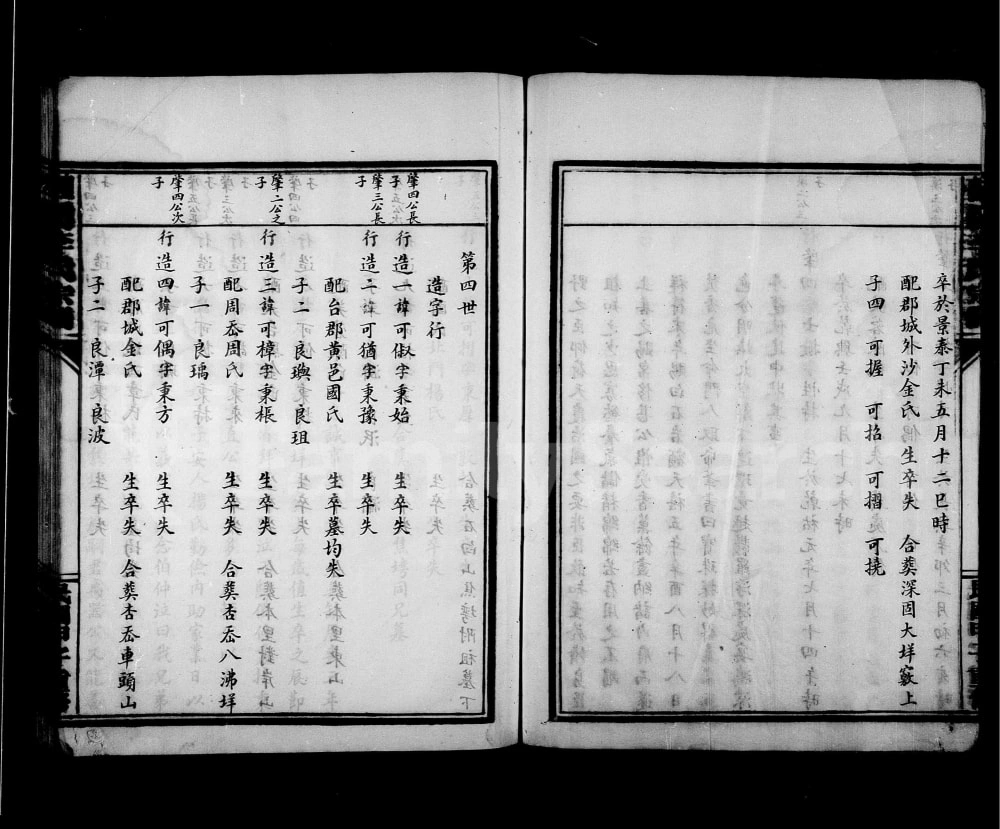 卒於景泰丁未五月十二巳時
配郡城外沙金氏偶生卒失 合葵深固大垟窽上
子四 可握 可招 可摺 可撓
第四世
造字行
肇四公長子
行造一諱可俶字秉始 生卒失
肇三公長子
行造二諱可猶字秉豫 生卒失
配台郡黃邑國氏 生卒墓均失
子二 良璵 良珇
肇二公之子
行造三諱可樟字秉棖 生卒失
配周岙周氏 生卒失 合葵杏岙八沸垟
子一 良瑀
肇四公次子
行造四諱可偶字秉方 生卒失
配郡城金氏 生卒失均合葵杏岙車頭山
子二 良潭 良波